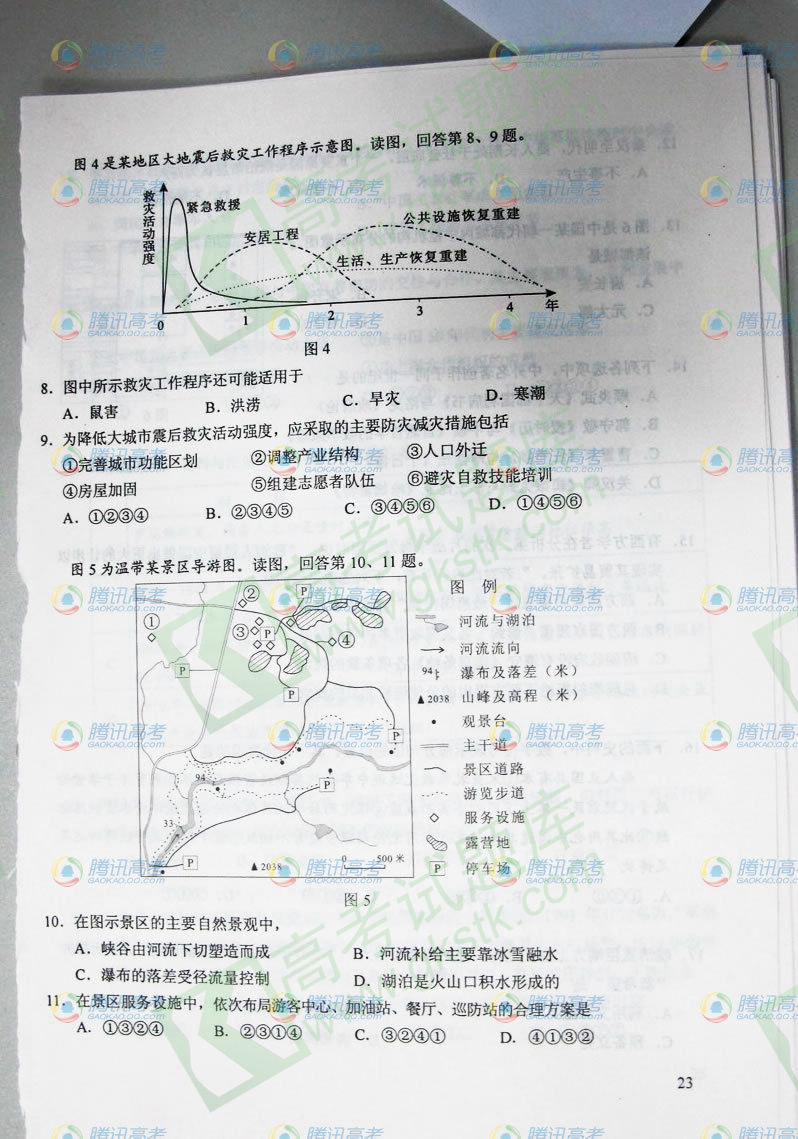 图4是某地区大地震后救灾工作程序示意图。读图，回答第8、9题。
救灾活动强度
紧急救援
安居工程
公共设施恢复重建
生活、生产恢复重建
0 1 2 3 4 年
图4
8. 图中所示救灾工作程序还可能适用于
A. 鼠害 B. 洪涝 C. 旱灾 D. 寒潮
9. 为降低大城市震后救灾活动强度，应采取的主要防灾减灾措施包括
①完善城市功能区划 ②调整产业结构 ③人口外迁
④房屋加固 ⑤组建志愿者队伍 ⑥避灾自救技能培训
A. ①②③④ B. ②③④⑤ C. ③④⑤⑥ D. ①④⑤⑥
图5为温带某景区导游图。读图，回答第10、11题。
① ② ③ ④
P P P P P P P
94
33
▲2038
0 500米
图例
河流与湖泊
河流流向
94 瀑布及落差（米）
▲2038 山峰及高程（米）
观景台
主干道
景区道路
游览步道
服务设施
露营地
P 停车场
图5
10. 在图示景区的主要自然景观中，
A. 峡谷由河流下切塑造而成 B. 河流补给主要靠冰雪融水
C. 瀑布的落差受径流量控制 D. 湖泊是火山口积水形成的
11. 在景区服务设施中，依次布局游客中心、加油站、餐厅、巡防站的合理方案是
A. ①③②④ B. ②③①④ C. ③②④① D. ④①③②
23
腾讯高考
GAOKAO.QQ.COM
高考试题库
www.gkstk.com